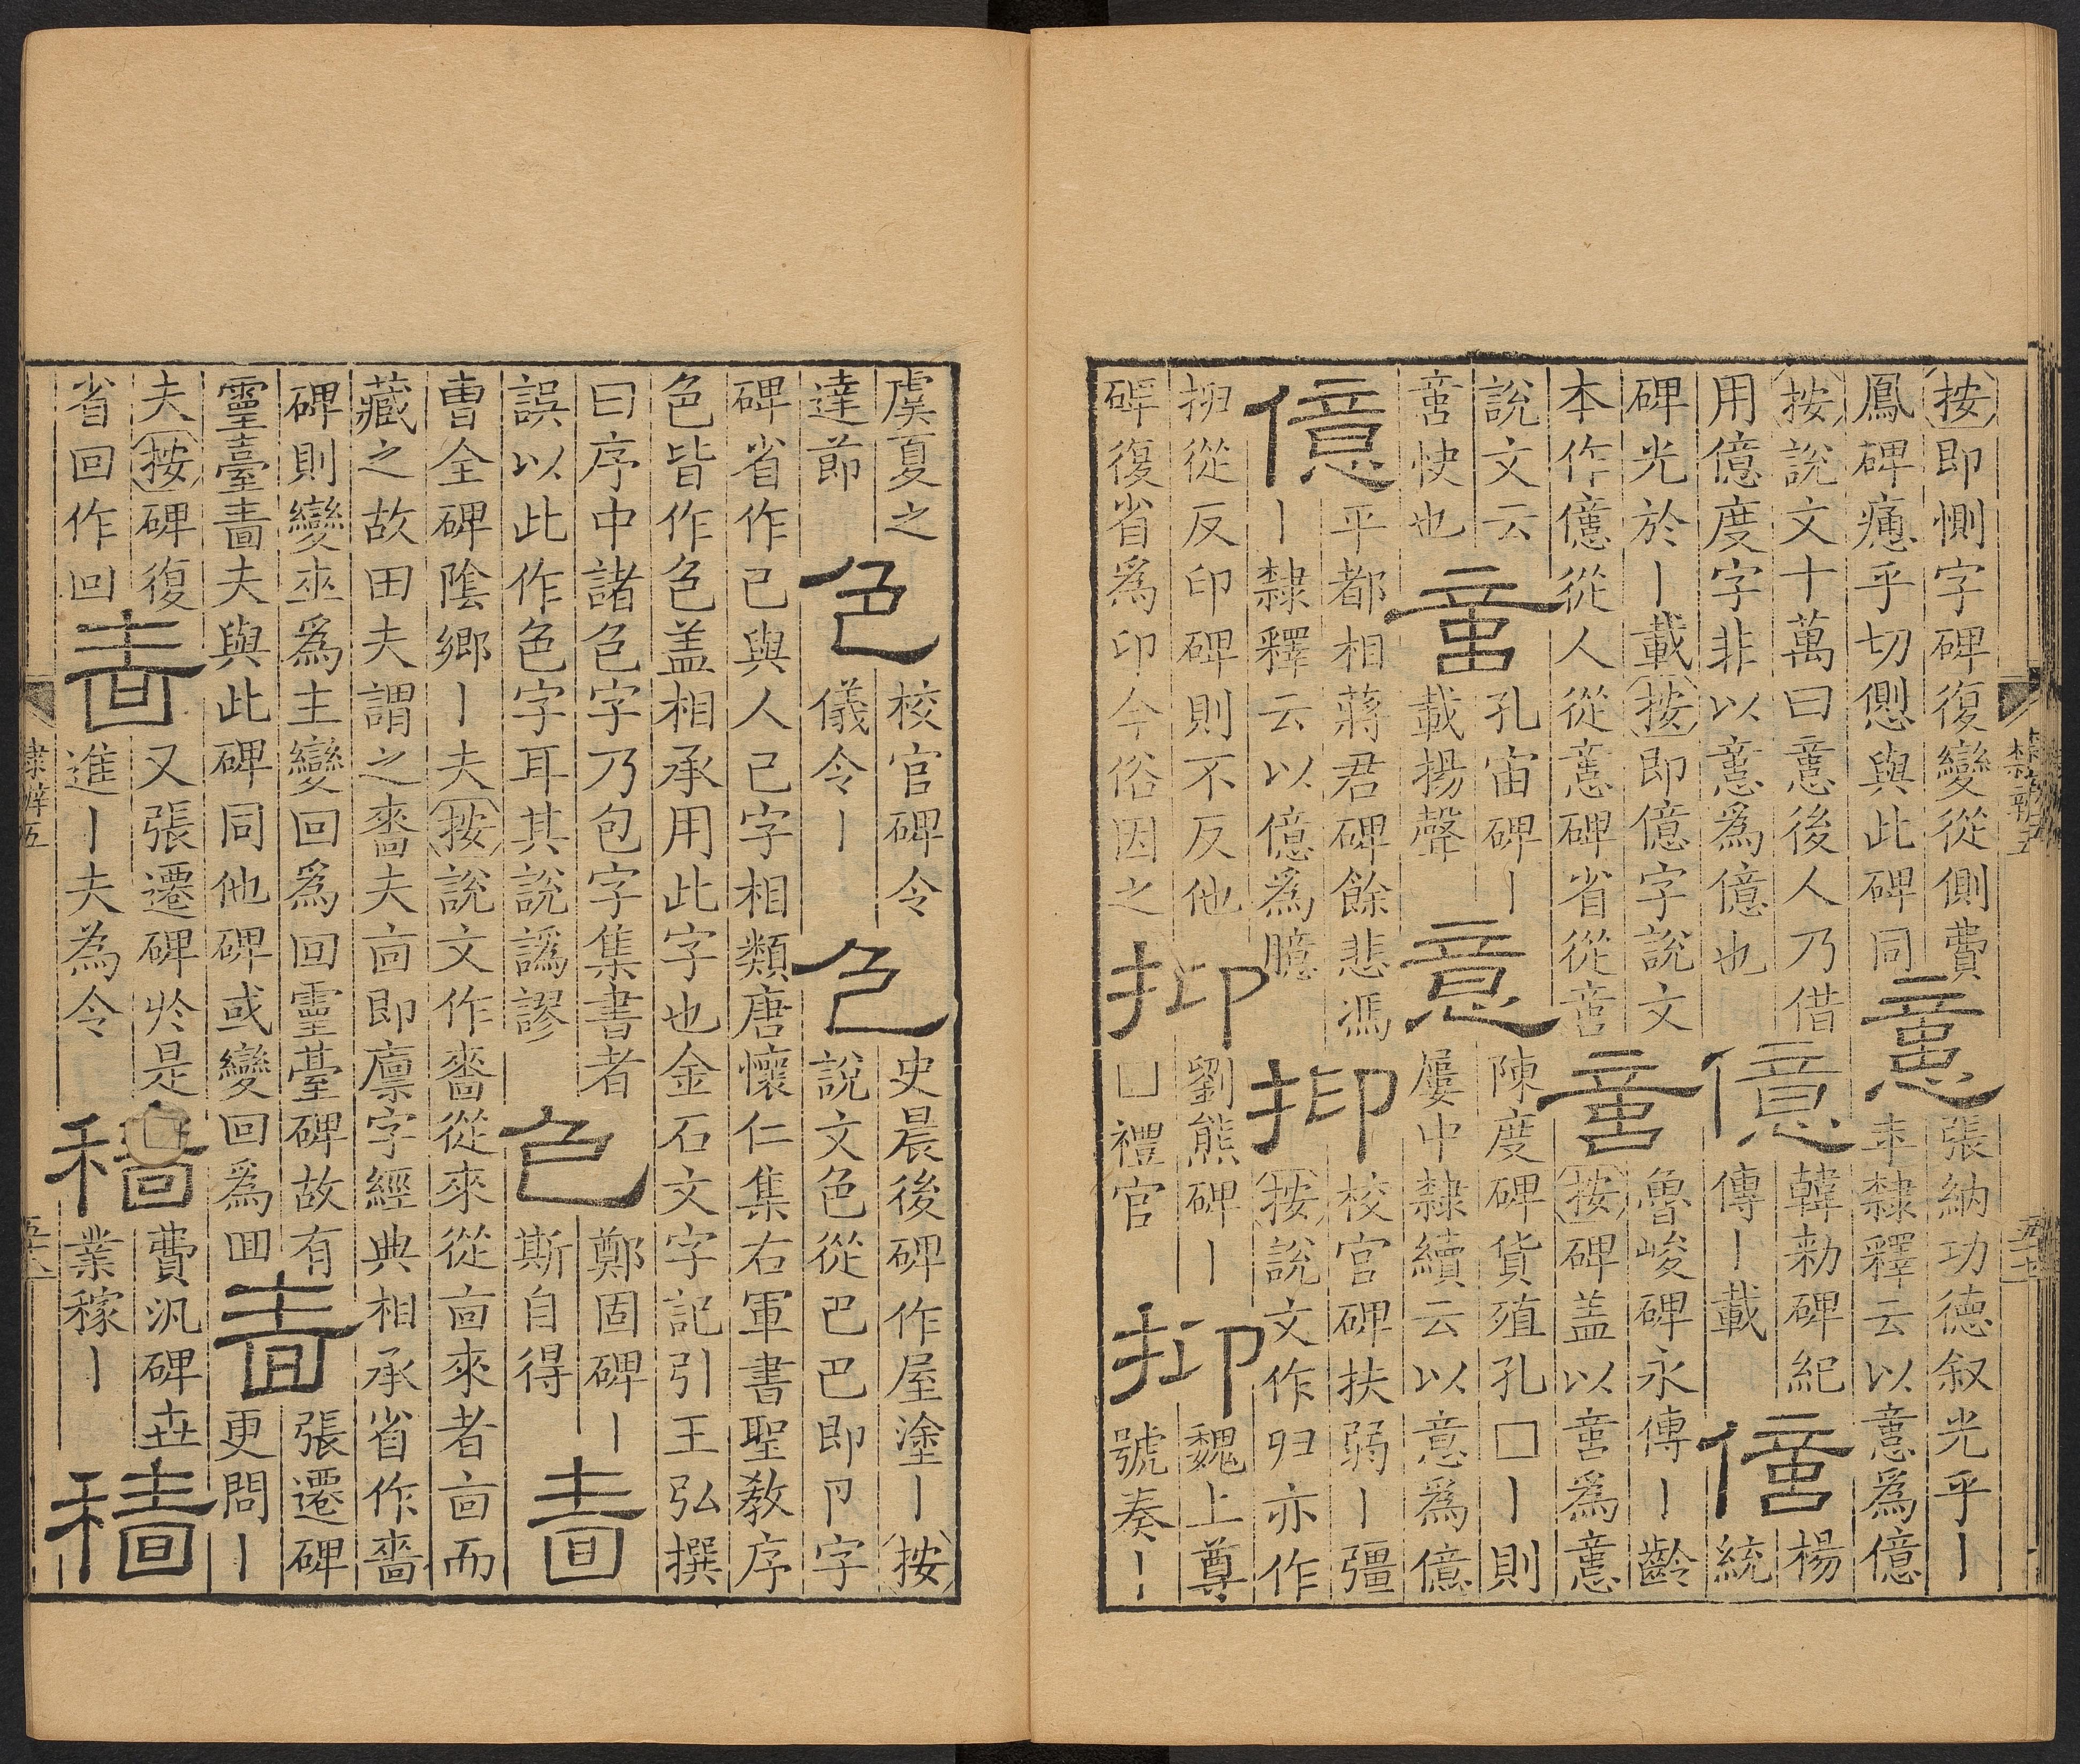 按即惻字碑復變從側費
鳳碑㥶乎切㥶與此碑同
意
張納功德叙光乎丨
年隸釋云以意爲億
按說文十萬曰意後人乃借
用億度字非以意爲億也
億
韓勑碑紀
傳丨載
億
楊統
碑光於丨載按即億字說文
本作億從人從意碑省從啻
啻
魯峻碑永傳丨齡
按碑盖以啻爲意
說文云
啻快也
啻
孔宙碑丨
載揚聲
意
陳度碑貨殖孔□丨則
屢中隸續云以意爲億
億
平都相蔣君碑餘悲馮
丨隸釋云以億爲臆
抑
校官碑扶弱丨彊
按說文作归亦作
抑從反印碑則不反他
碑復省爲印今俗因之
抑
劉熊碑丨
凵禮官
抑
魏上尊
號奏丨
隸辨五
虞夏之
達節
色
校官碑令
儀令丨
色
史晨後碑作屋塗丨按
說文色從巴巴即卩字
碑省作已與人己字相類唐懷仁集右軍書聖敎序
色皆作色盖相承用此字也金石文字記引王弘撰
曰序中諸色字乃包字集書者
誤以此作色字耳其說譌謬
色
鄭固碑丨
斯自得
嗇
曹全碑陰鄉丨夫按說文作嗇從來從㐭來者㐭而
藏之故田夫謂之嗇夫㐭即廩字經典相承省作嗇
碑則變來爲主變回爲囘靈臺碑故有
靈臺嗇夫與此碑同他碑或變回爲囬
嗇
張遷碑
更問丨
夫按碑復
省回作囘
嗇
又張遷碑於是
進丨夫為令
穡
費汎碑㽵
業稼丨
穡
隸辨五